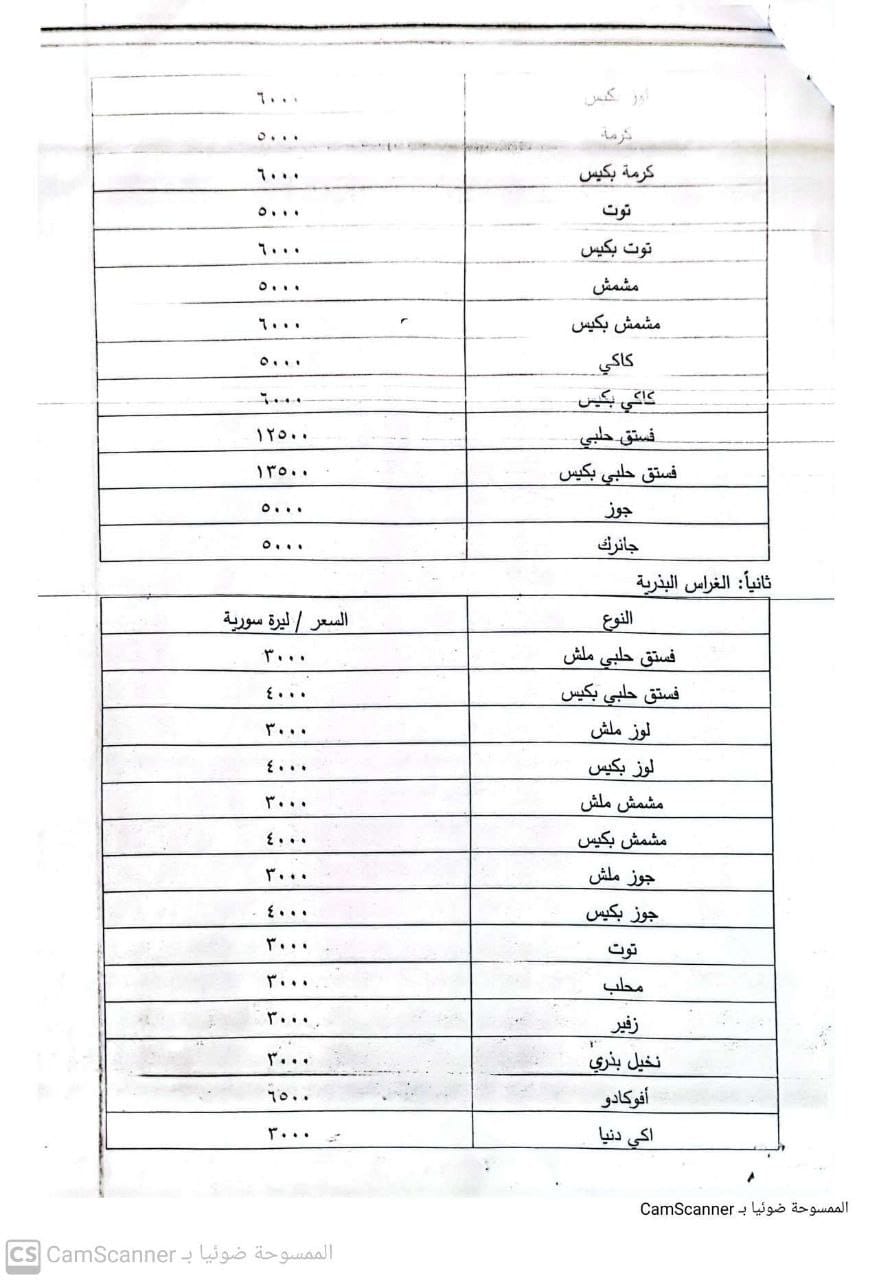 بكيس ٦٠٠٠
كرمة ٥٠٠٠
كرمة بكيس ٦٠٠٠
توت ٥٠٠٠
توت بكيس ٦٠٠٠
مشمش ٥٠٠٠
مشمش بكيس ٦٠٠٠
كاكي ٥٠٠٠
كاكي بكيس ٦٠٠٠
فستق حلبي ١٢٥٠٠
فستق حلبي بكيس ١٣٥٠٠
جوز ٥٠٠٠
جانرك ٥٠٠٠
ثانياً: الغراس البذرية
النوع السعر / ليرة سورية
فستق حلبي ملش ٣٠٠٠
فستق حلبي بكيس ٤٠٠٠
لوز ملش ٣٠٠٠
لوز بكيس ٤٠٠٠
مشمش ملش ٣٠٠٠
مشمش بكيس ٤٠٠٠
جوز ملش ٣٠٠٠
جوز بكيس ٤٠٠٠
توت ٣٠٠٠
محلب ٣٠٠٠
زفير ٣٠٠٠
نخيل بذري ٣٠٠٠
أفوكادو ٦٥٠٠
اكي دنيا ٣٠٠٠
٨
الممسوحة ضوئيا بـ CamScanner
CS CamScanner الممسوحة ضوئيا بـ